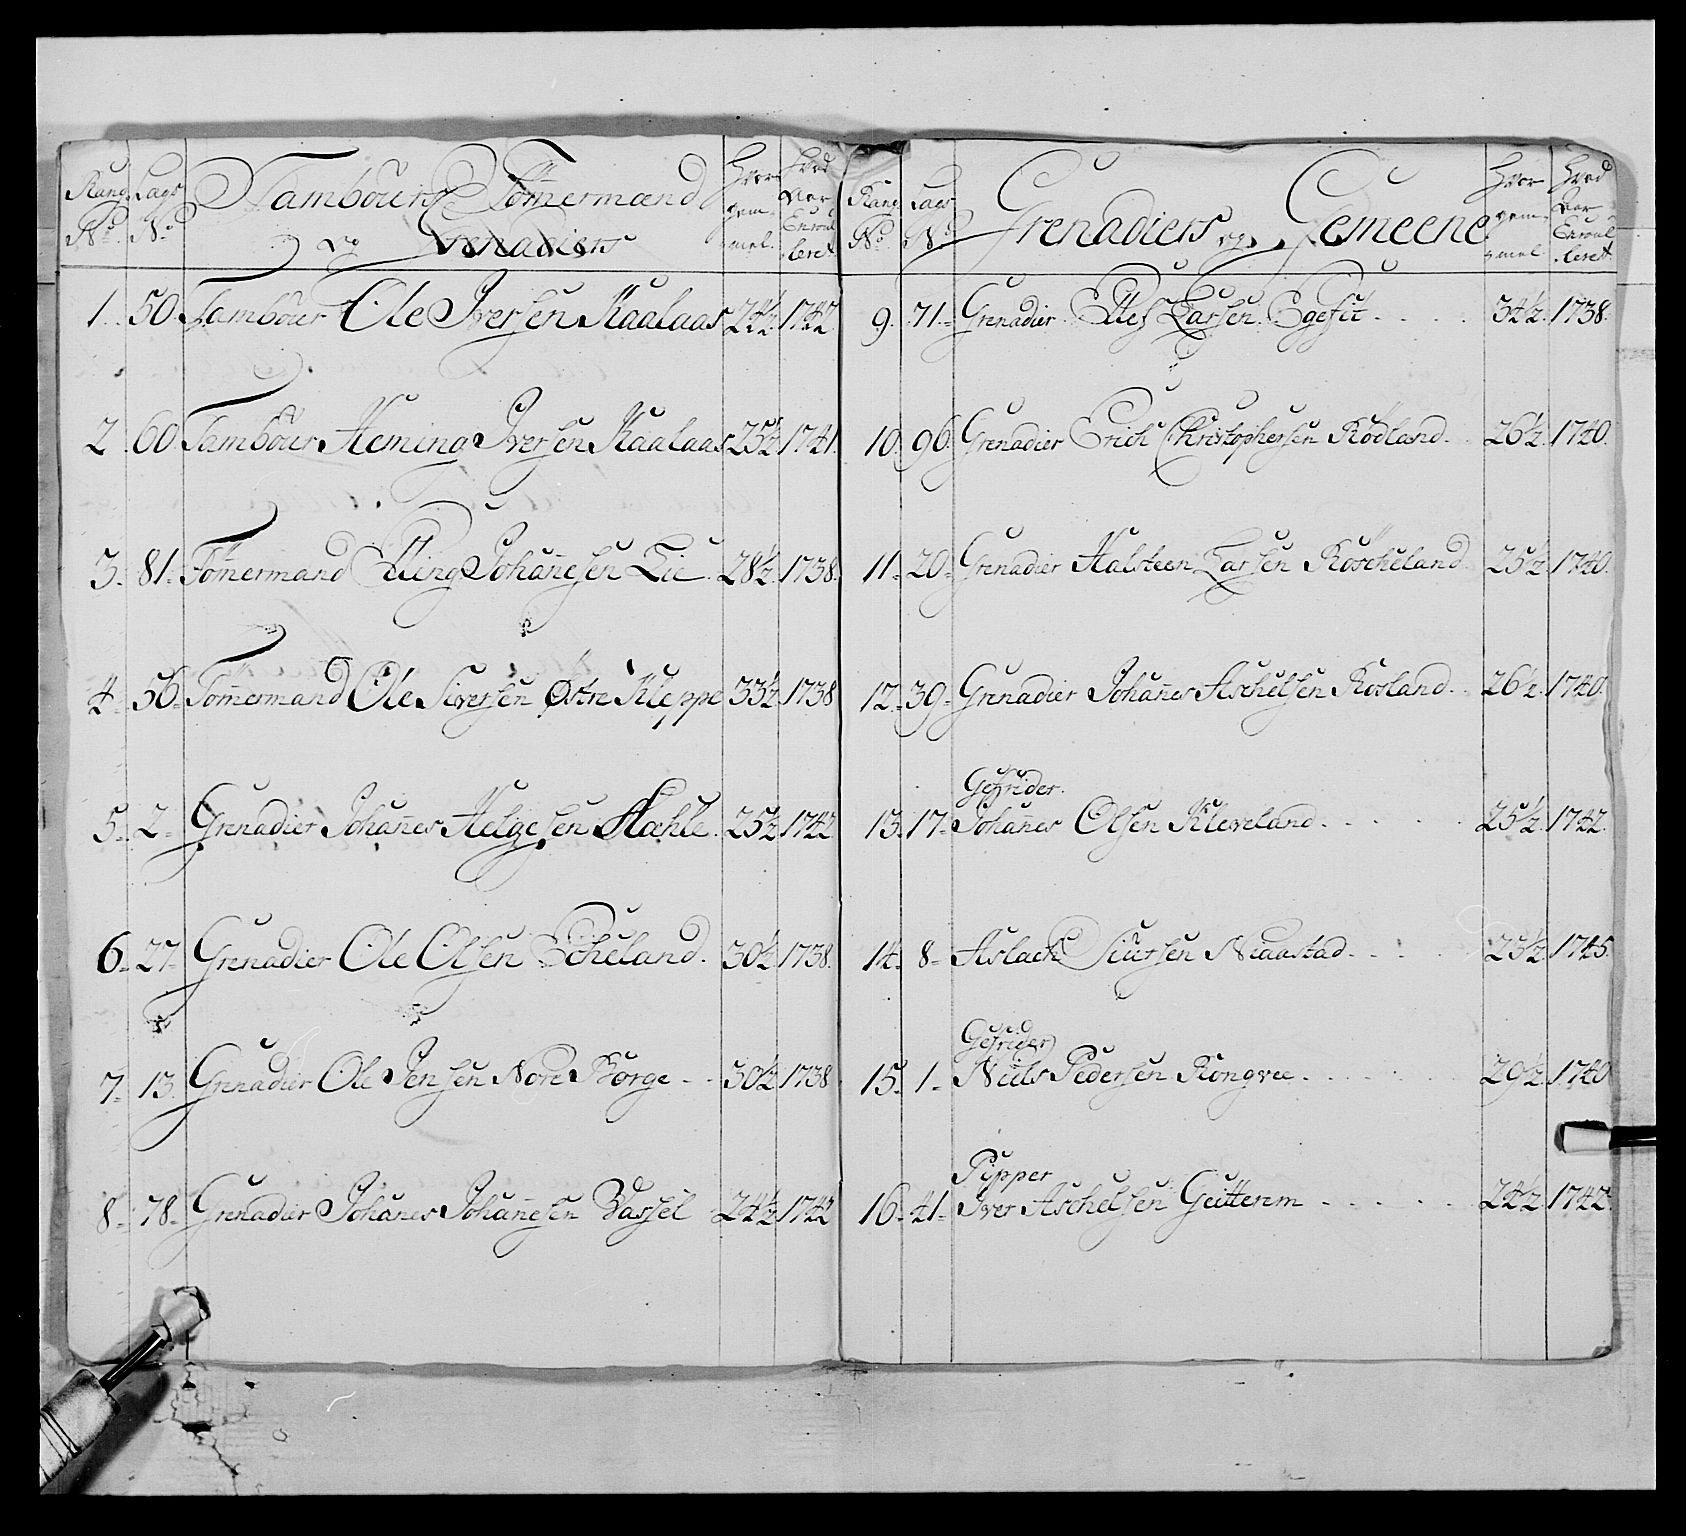 Rang No. Lags No. Tambours Tömermænd og Grenadiers Hvor gam- mel. Hvad Aar Enroul- leret
1. 50. Tambour Ole Iversen Kaalaas 24½ 1742
2. 60. Tambour Heming Iversen Kaalaas 25½ 1741.
3. 81. Tömermand Elling Johañesen Lie 28½ 1738.
4. 56. Tömermand Ole Siversen Østre Kleppe 33½ 1738
5. 2. Grenadier Johañes Helgesen Mæhle. 25½ 1742
6. 27. Grenadier Ole Olsen Echeland. 30½ 1738.
7. 13. Grenadier Ole Jensen Nore Borge 30½ 1738
8. 78. Grenadier Johañes Johañesen Vassel 24½ 1742
Rang No. Lags No. Grenadiers og Gemeene Hvor gam- mel Hvad Aar Enroul- leret
9. 71. Grenadier Larsen 34½ 1738.
10. 96. Grenadier Erich Christophersen Rödland. 26½ 1740.
11. 20. Grenadier Halsteen Larsen Röscheland 25½ 1740.
12. 39. Grenadier Johañes Aschelsen Rosland. 26½ 1740.
Gefrider.
13. 17. Johañes Olsen Kleveland 25½ 1742.
14. 8. Aslach Siursen Neaastad 23½ 1745.
Gefrider
15. 1. Niels Pedersen Rongvee 29½ 1740
Pipper
16. 41. Iver Aschelsen Geitterem 24½ 1742